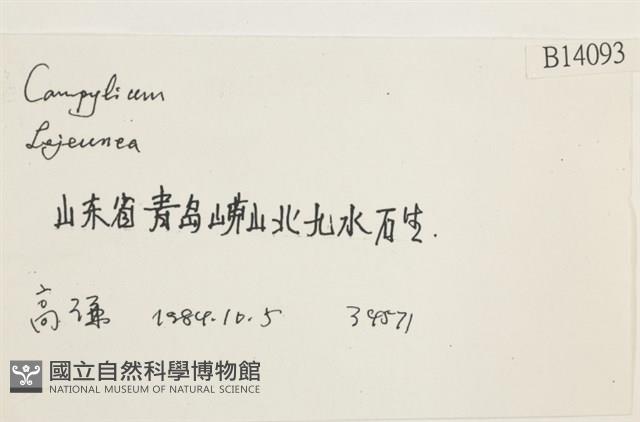 B14093
Campylium
Lejeunea
山东省青岛崂山北九水石生.
高谦 1984.10.5 34571
國立自然科學博物館
NATIONAL MUSEUM OF NATURAL SCIENCE